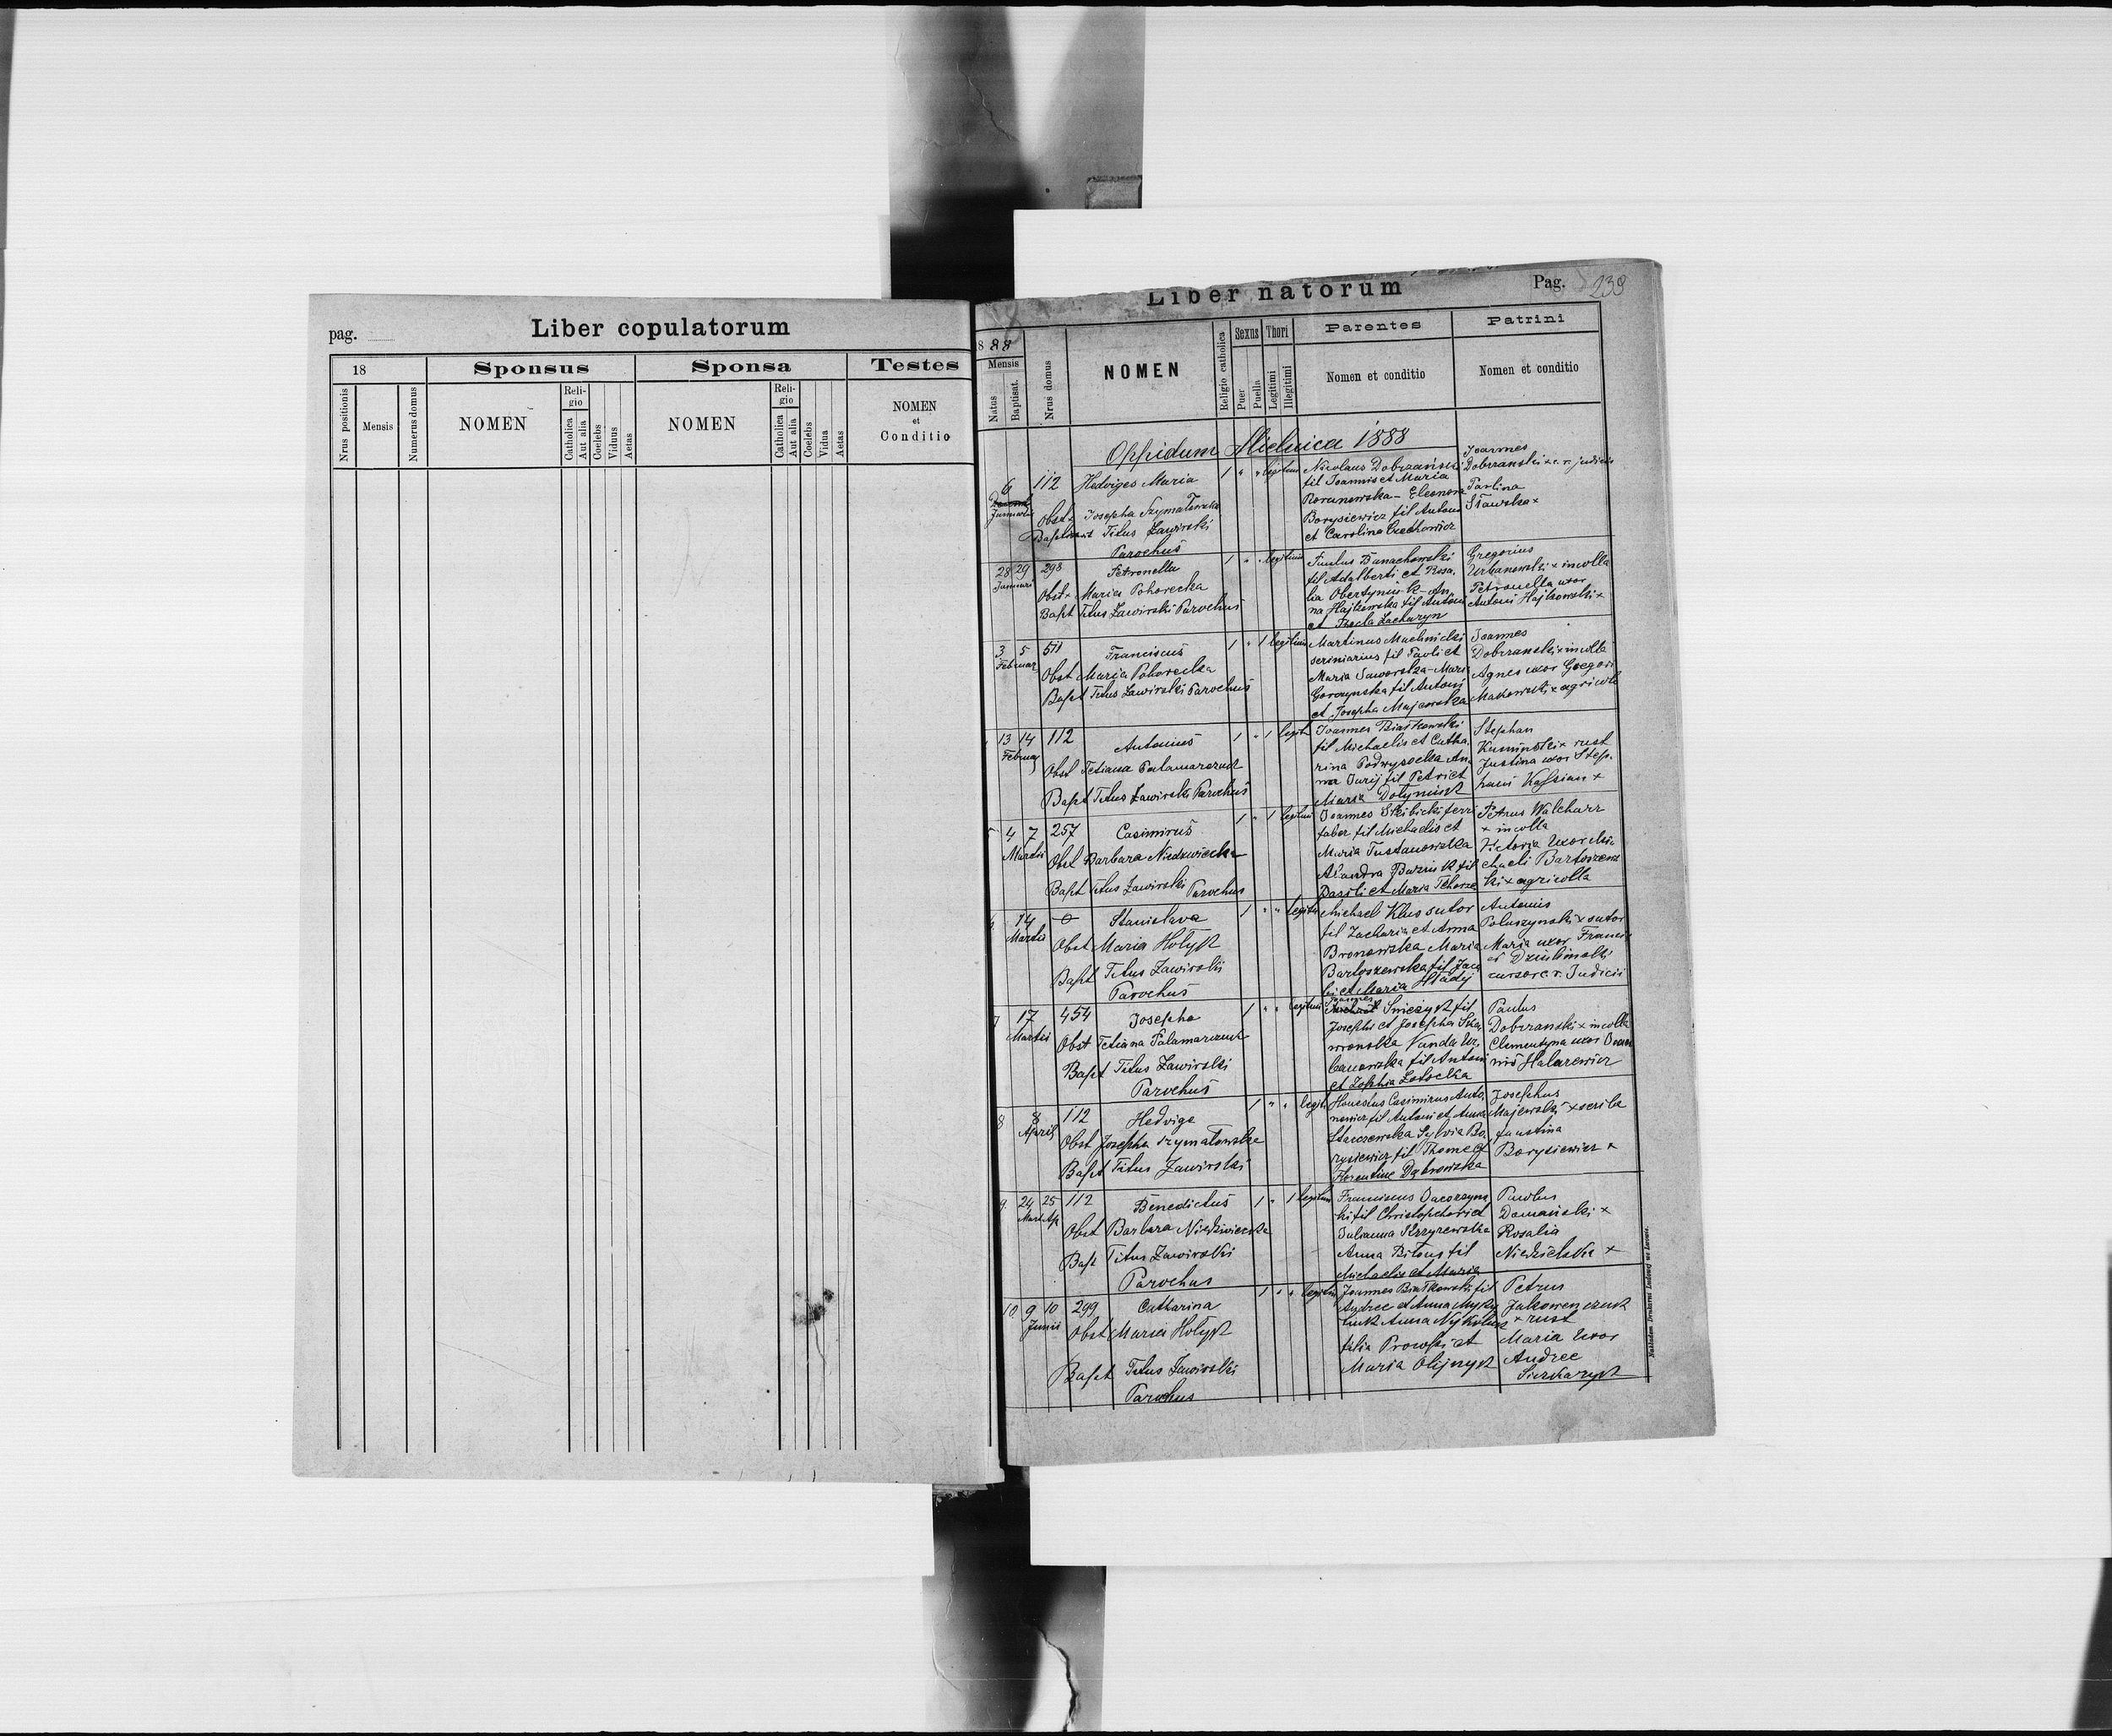 pag.
Liber copulatorum
18
Sponsus
Sponsa
Testes
Nrus positionis
Mensis
Numerus domus
NOMEN
Reli-
gio
Catholica
Aut alia
Coelebs
Viduus
Aetas
NOMEN
Reli-
gio
Catholica
Aut alia
Coelebs
Vidua
Aetas
NOMEN
et
Conditio
Liber natorum
Pag. 239
1888
Mensis
Natus
Baptisat.
Nrus domus
NOMEN
Religio catholica
Sexus
Puer
Puella
Thori
Legitimi
Illegitimi
Parentes
Nomen et conditio
Patrini
Nomen et conditio
Oppidum Mielnica 1888
6
Januarii
112
Hedviges Maria
Obst. Josepha Szymatowska
Baptisavit Titus Zawirski
Parochus
1 " " legitimi
Nicolaus Dobrzański
fil Joannis et Maria
Eleonora
Borysiewicz fil Antoni
et Carolina Czechowicz
Joannes
Dobrzanski x c. r. judicii
Paulina
Sławska x
28 29
Januarii
298
Petronella
Obst x Maria Pohorecka
Bapt Titus Zawirski Parochus
1 " " legitimi
Paulus Banachowski
fil Adalberti et Rosa
lia Obertyniuk - An
na Hajkowska fil Antoni
et Thecla Zacharyn
Gregorius
Urbanowski x incolla
Petronella uxor
Antoni Hajkowski x
3 5
Februar
511
Franciscus
Obst Maria Pohorecka
Bapt Titus Zawirski Parochus
1 " 1 legitimi
Martinus Machnicki
scriniarius fil Pauli et
Maria Jaworska - Maria
Gorczynska fil Antoni
et Josepha Majewska
Joannes
Dobrzanski x incolla
Agnes uxor Gregori
Makowski x agricolla
13 14
Februar
112
Antonius
Obst Tetiana Palamarczuk
Bapt Titus Zawirski Parochus
1 " 1 legit.
Joannes Białkowski
fil Michaelis et Catha
rina Podwysocka An
na Jurij fil Petri et
Maria Dołyniuk
Stephan
Kuminski x rust
Justina uxor Step.
hani Kassian x
4 7
Martii
257
Casimirus
Obst Barbara Niedzwiecka
Bapt Titus Zawirski Parochus
1 " 1 legitimi
Joannes Skibicki ferri
faber fil Michaelis et
Maria Tustanowska
fil
Basili et Maria
Petrus
x incolla
Victoria uxor Mi
chaeli Bartoszews
ki x agricolla
14
Martii
Stanislava
Obst Maria Hołyk
Bapt Titus Zawirski
Parochus
1 " " legitimi
Michael Klus sutor
fil Zacharia et Anna
Bronowska Maria
Bartoszewska fil Jaco
bi et Maria Hładij
Antonius
Poluszynski x sutor
Maria uxor Francis
ci Dziubinski
cursor c. r. Judicii
7
17
Martii
454
Josepha
Obst Tetiana Palamarczuk
Bapt Titus Zawirski
Parochus
1 " " legitimi
Joannes Smiczyk fil
Josephi et Josepha
Vanda Ur
banowska fil Antoni
et Zophia Łotocka
Paulus
Dobrzanski x incolla
Clementyna uxor Joan
nis Halarewicz
8
8
April
112
Hedvige
Obst Josepha Szymatowska
Bapt Titus Zawirski
1 " " legit.
Honestus Casimirus Anto
newicz fil Antoni et Anna
Staczewska Sylvia Bo
rysiewicz fil Thome et
Florentine Dąbrowska
Josephus
Majewski x scriba
Faustina
Borysiewicz x
9
24 25
112
Benedictus
Obst Barbara Niedzwiecka
Bapt Titus Zawirski
Parochus
1 " 1 legitimi
Franciscus
ki fil Christophori et
Julianna Krzyzewska
Anna Biłous fil
Michaelis et Maria
Paulus
Domański x
Rosalia
Niedzielska x
10
9 10
Junii
299
Catharina
Obst Maria Hołyk
Bapt Titus Zawirski
Parochus
1 " " legitimi
Joannes Białkowski fil
Andree et Anna
Anna
filia et
Maria Olijnyk
Petrus
Jakowenczuk
x rust
Maria Uxor
Andree
Nakładem Drukarni Ludowej we Lwowie.